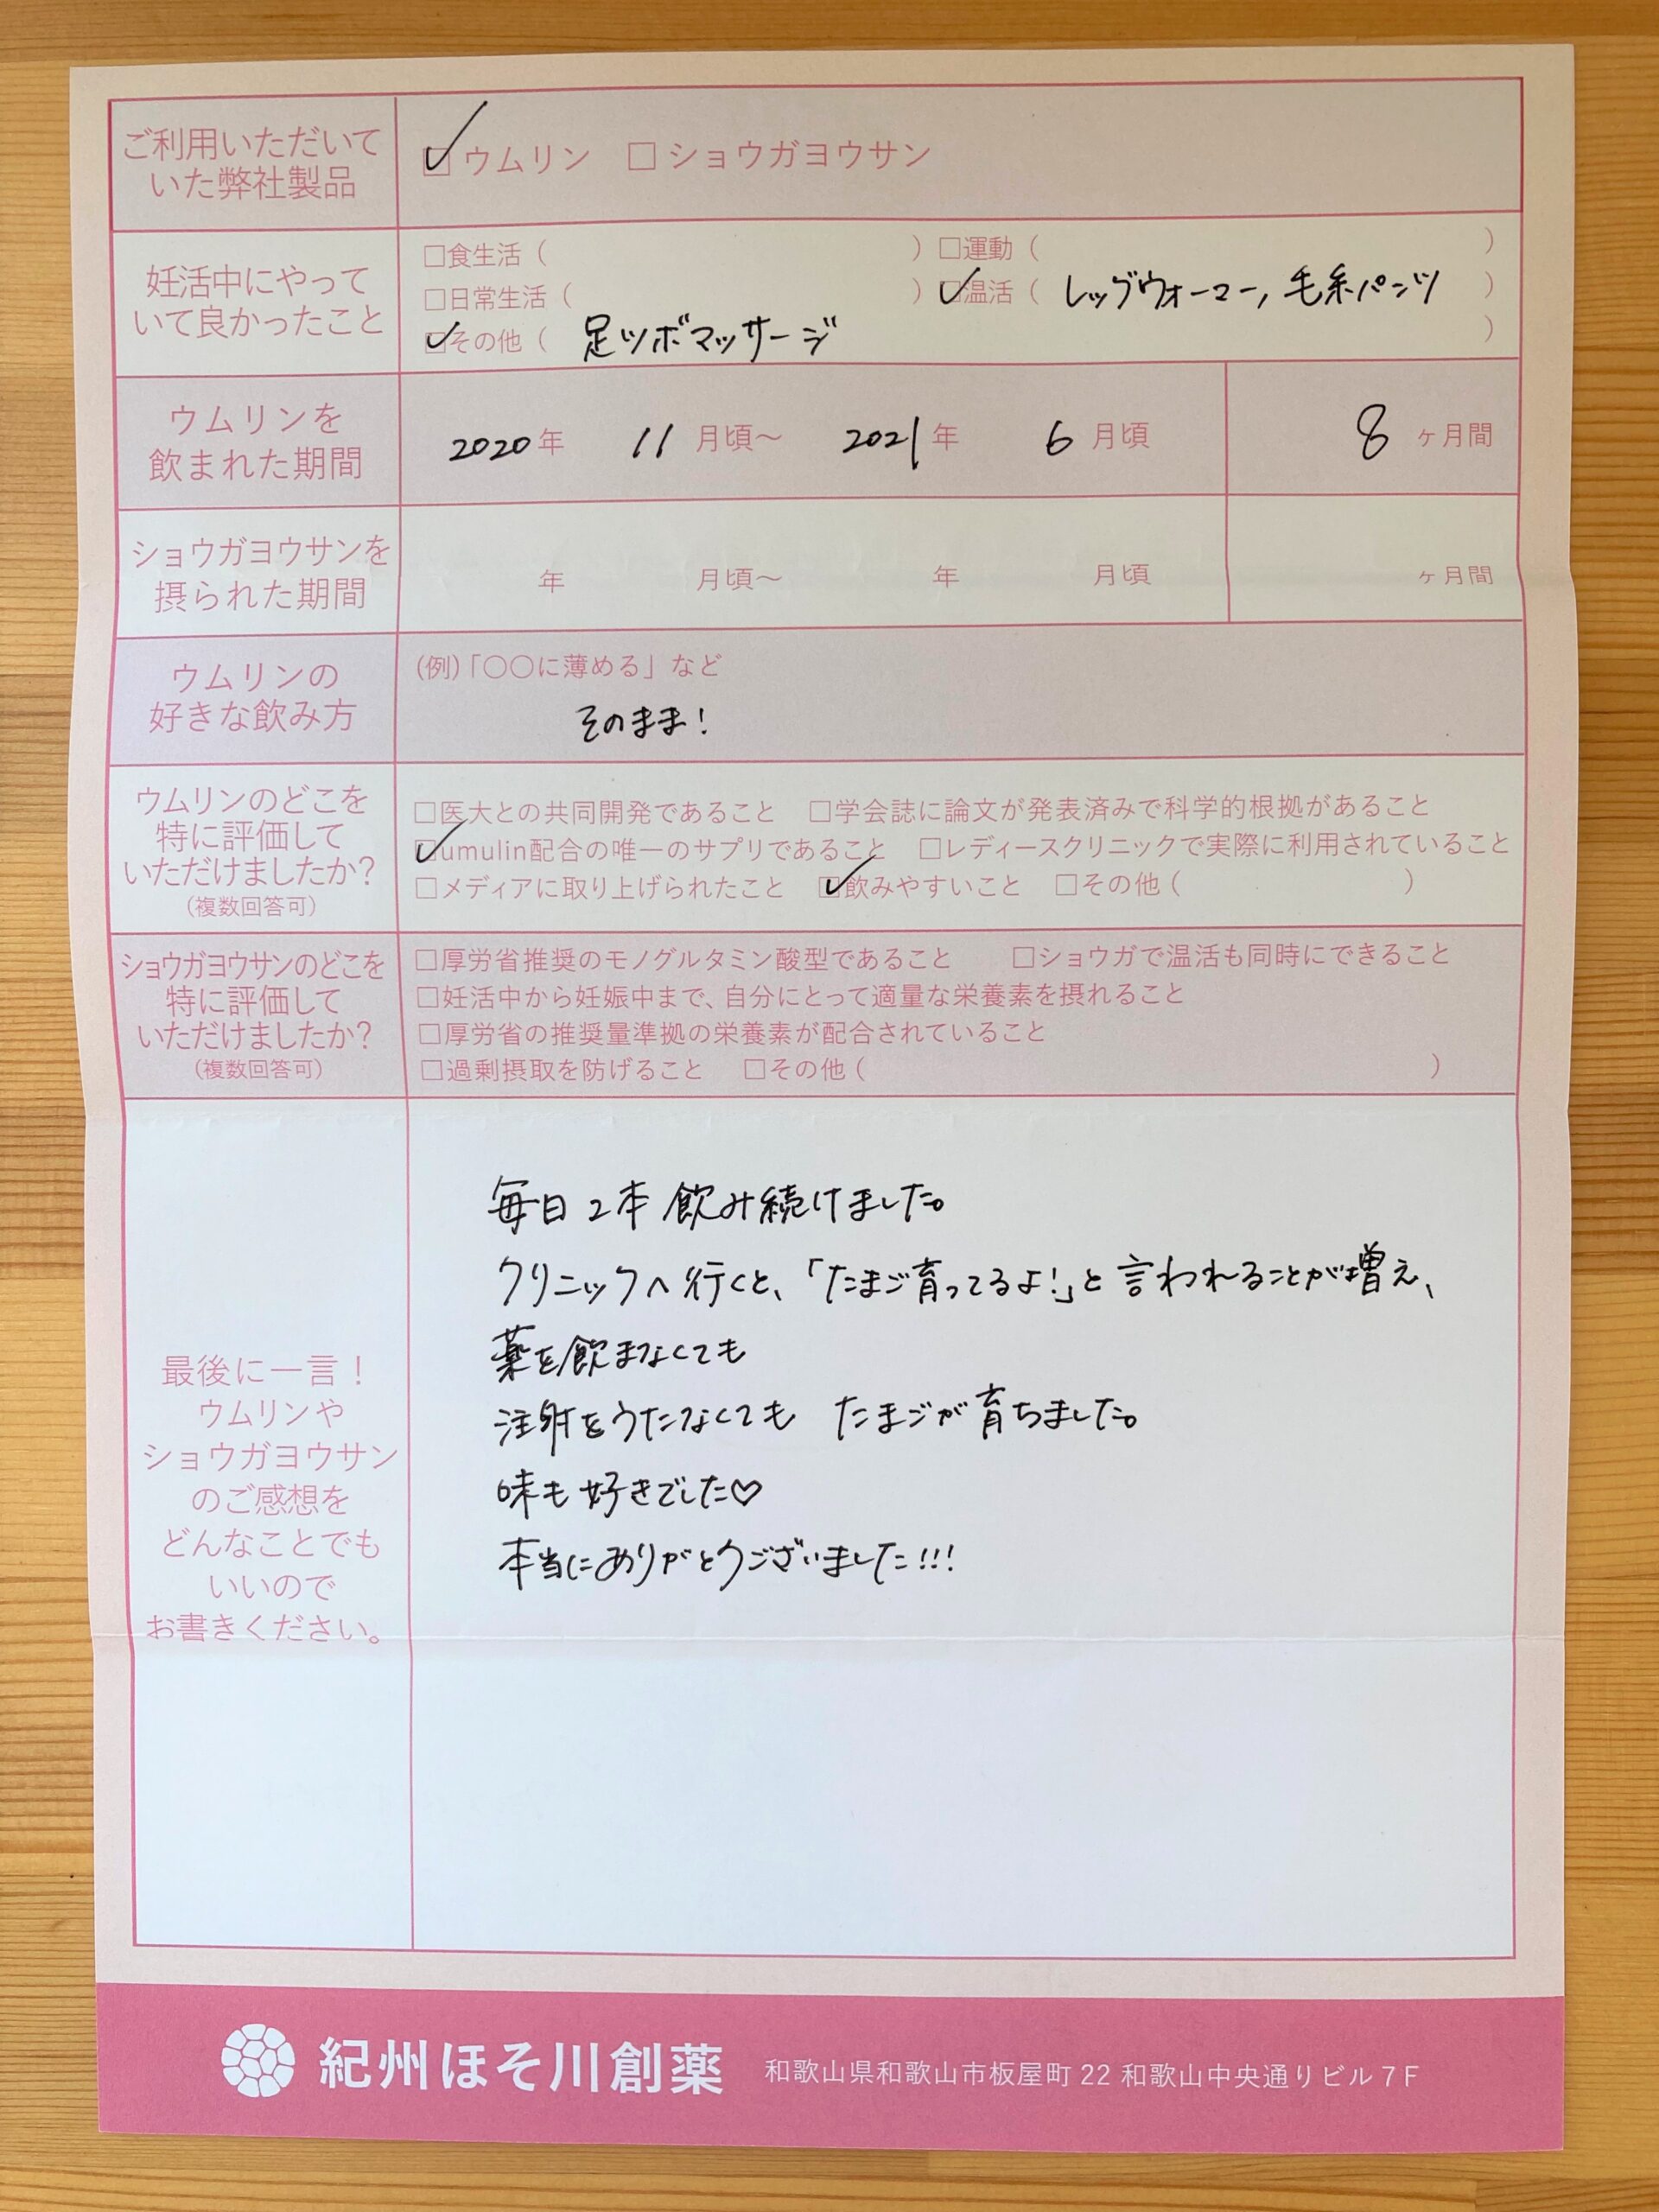 ご利用いただいて
いた弊社製品
☑ウムリン □ショウガヨウサン
妊活中にやって
いて良かったこと
□食生活（ ）□運動（ ）
□日常生活（ ）☑温活（レッグウォーマー, 毛糸パンツ）
☑その他（足ツボマッサージ ）
ウムリンを
飲まれた期間
2020年 11月頃〜 2021年 6月頃 8ヶ月間
ショウガヨウサンを
摂られた期間
年 月頃〜 年 月頃 ヶ月間
ウムリンの
好きな飲み方
(例)「〇〇に薄める」など
そのまま!
ウムリンのどこを
特に評価して
いただけましたか?
(複数回答可)
□医大との共同開発であること □学会誌に論文が発表済みで科学的根拠があること
☑umulin配合の唯一のサプリであること □レディースクリニックで実際に利用されていること
□メディアに取り上げられたこと ☑飲みやすいこと □その他（ ）
ショウガヨウサンのどこを
特に評価して
いただけましたか?
(複数回答可)
□厚労省推奨のモノグルタミン酸型であること □ショウガで温活も同時にできること
□妊活中から妊娠中まで、自分にとって適量な栄養素を摂れること
□厚労省の推奨量準拠の栄養素が配合されていること
□過剰摂取を防げること □その他（ ）
最後に一言！
ウムリンや
ショウガヨウサン
のご感想を
どんなことでも
いいので
お書きください。
毎日2本 飲み続けました。
クリニックへ行くと、「たまご育ってるよ!」と言われることが増え、
薬を飲まなくても
注射をうたなくても たまごが育ちました。
味も好きでした♡
本当にありがとうございました!!!
紀州ほそ川創薬 和歌山県和歌山市板屋町22 和歌山中央通りビル7F